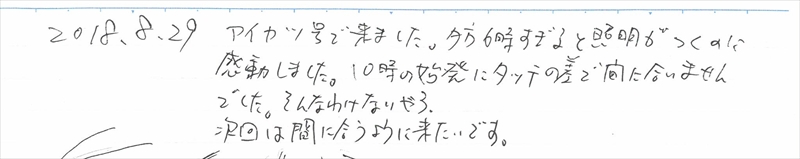 2018.8.29 アイカツ号で来ました。夕方6時すぎると照明がつくのに
感動しました。10時の始発にタッチの差で間に合いません
でした。そんなわけないやろ.
次回は間に合うように来たいです。